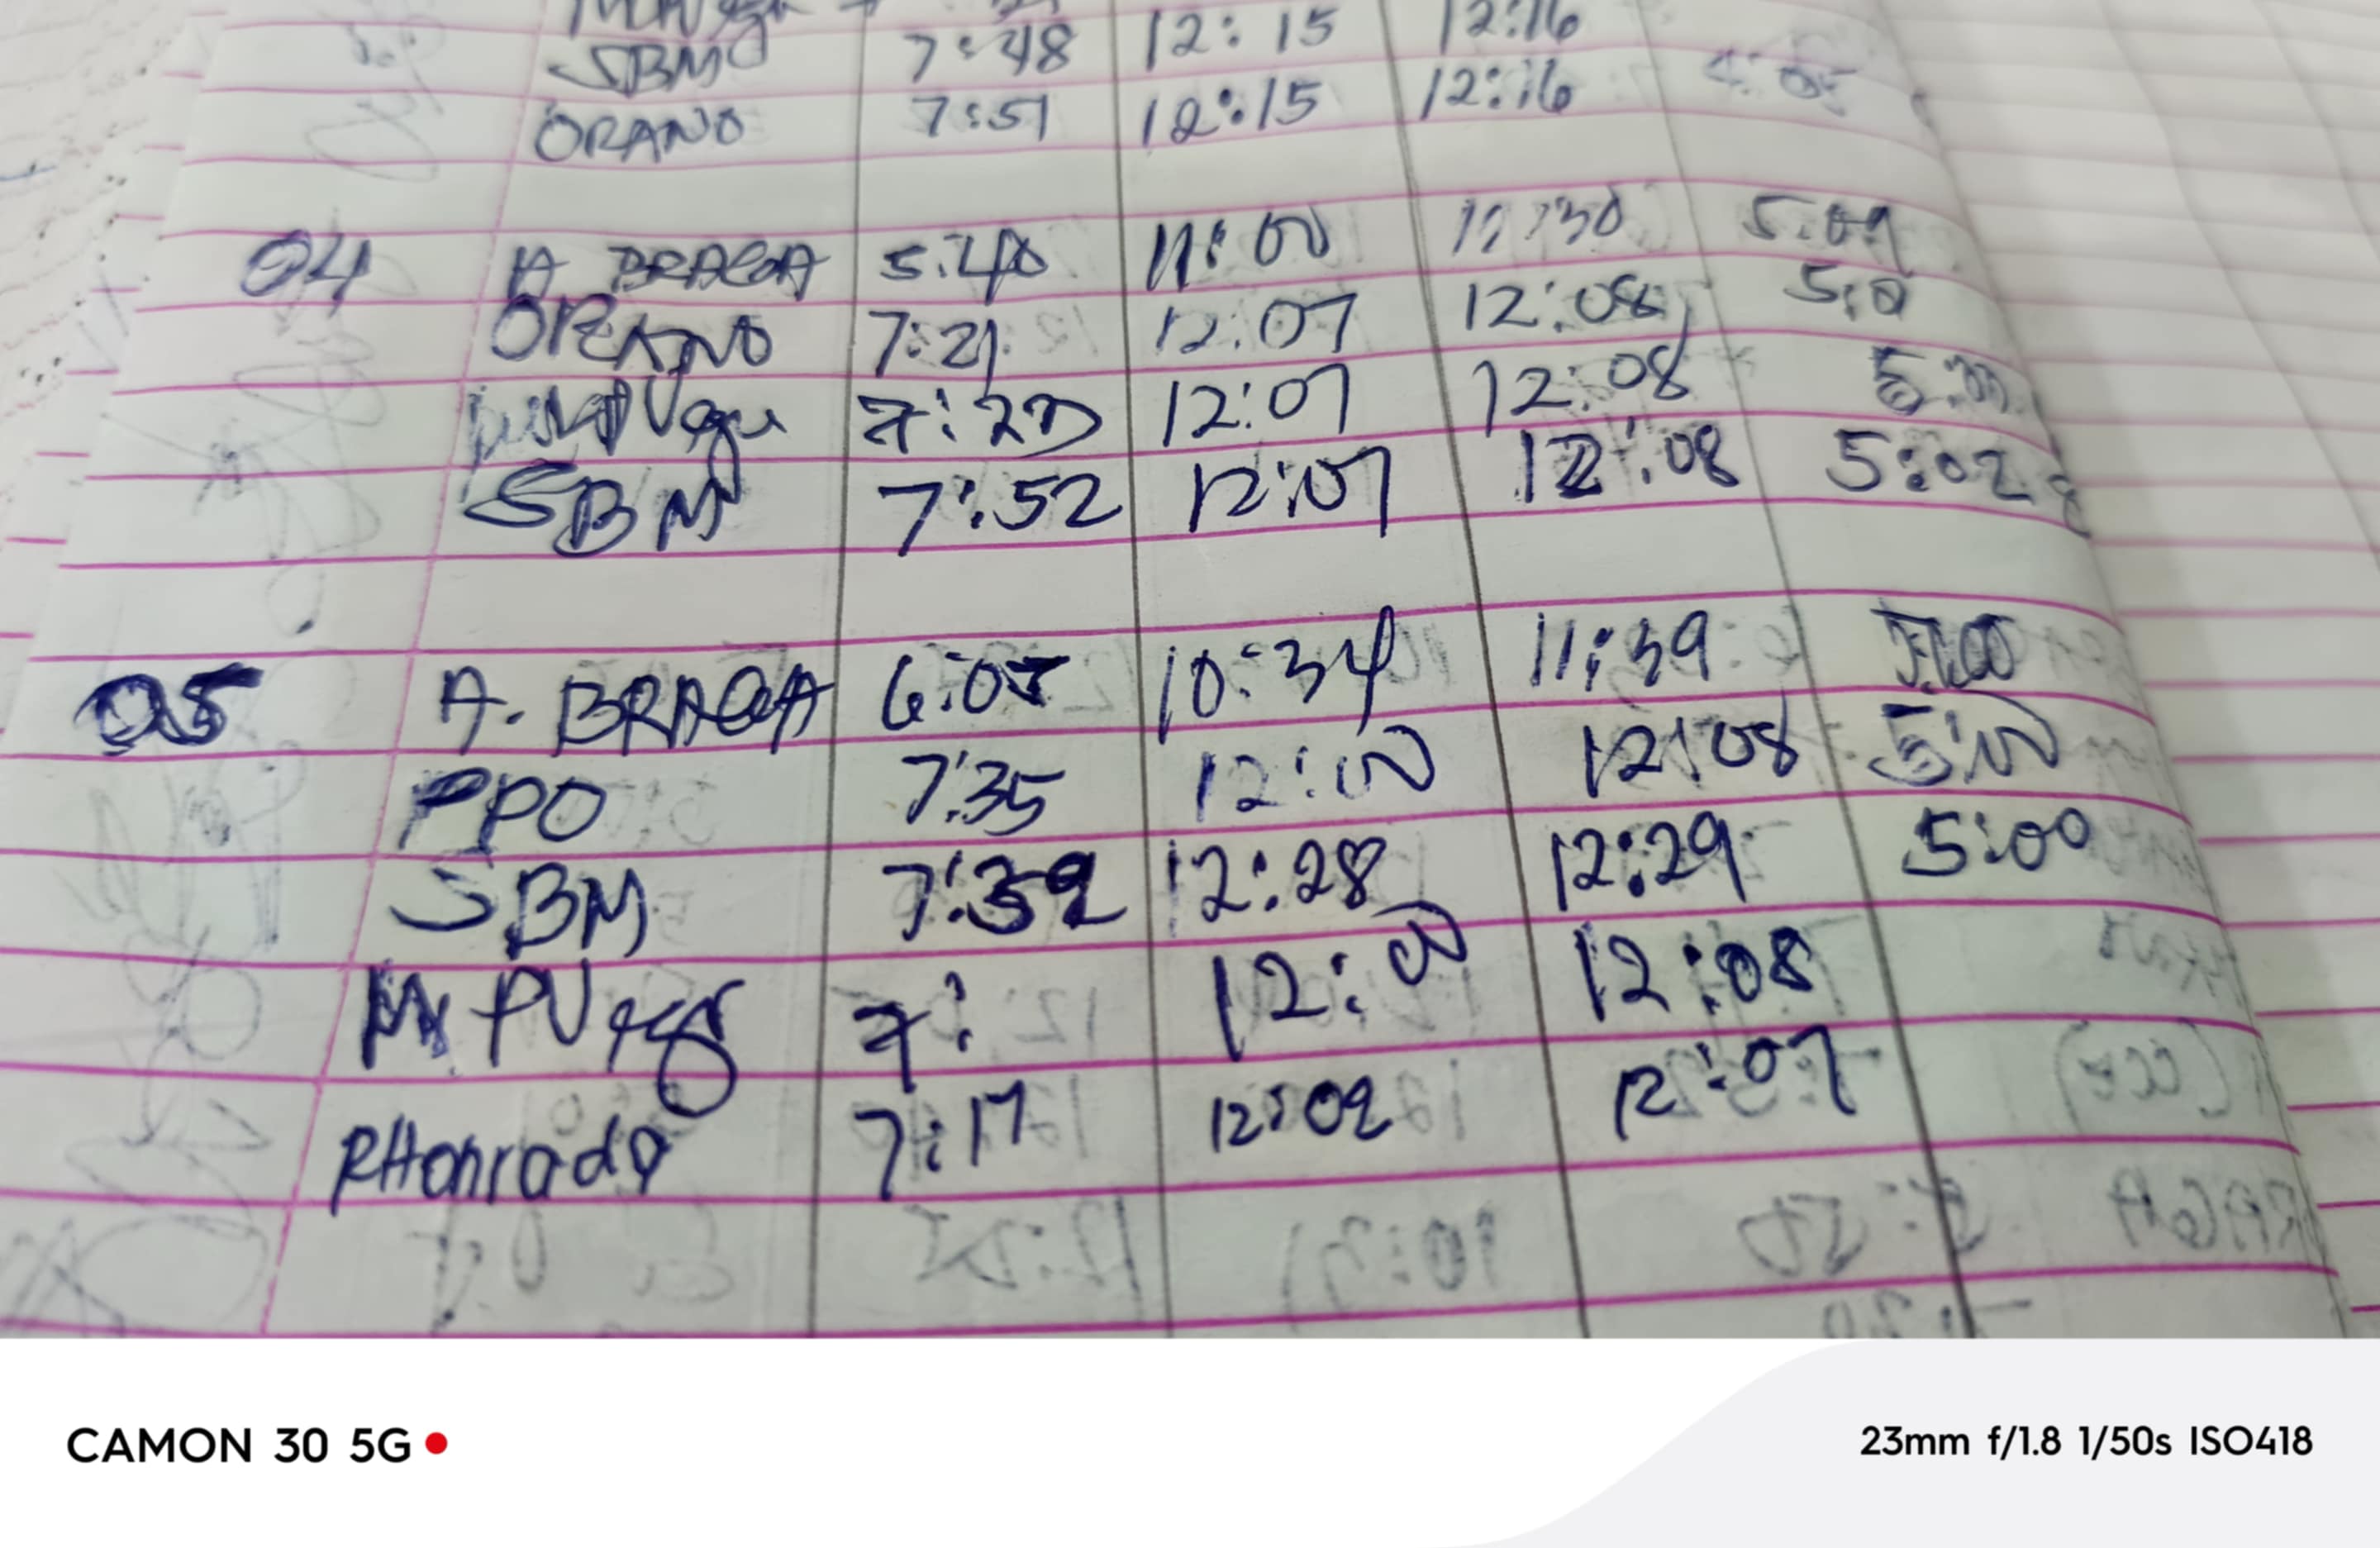 SBM 7:48 12:15 12:16
ORANO 7:51 12:15 12:16 4:05
04 A BRAGA 5:40 11:00 11:30 5:09
ORANO 7:21 12:07 12:08 5:0
7:23 12:07 12:08
SBM 7:52 12:07 12:08 5:02
05 A. BRAGA 6:05 10:34 11:39 5:00
PPO 7:35 12:00 12:08 5:00
SBM 7:39 12:28 12:29 5:00
7: 12:00 12:08
RHonrado 7:17 12:02 12:07
CAMON 30 5G
23mm f/1.8 1/50s ISO418